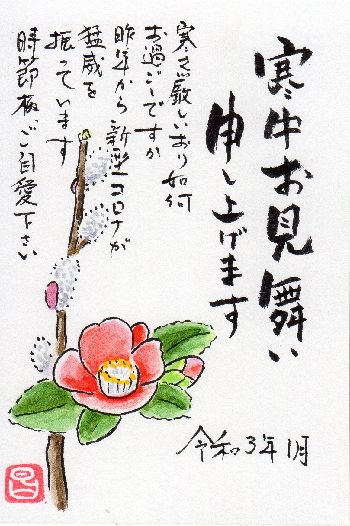 寒中お見舞い
申し上げます
寒さ厳しいおり如何
お過ごしですか
昨年から新型コロナが
猛威を
振っています
時節柄、ご自愛下さい
令和3年1月